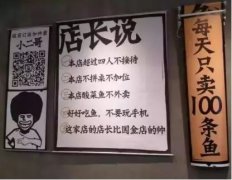 小二哥
店长说
本店超过四人不接待
本店不拼桌不加位
本店酸菜鱼不外卖
好好吃鱼，不要玩手机
这家店的店长比国金店的帅
每天只卖100条鱼